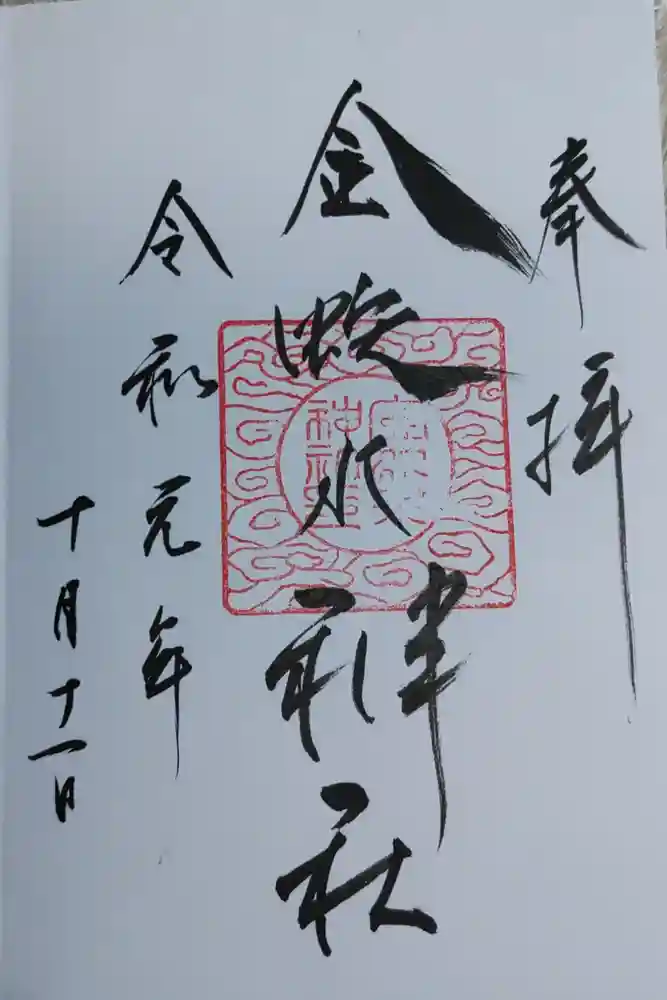 奉拝
金蛇水神社
令和元年
十月十一日